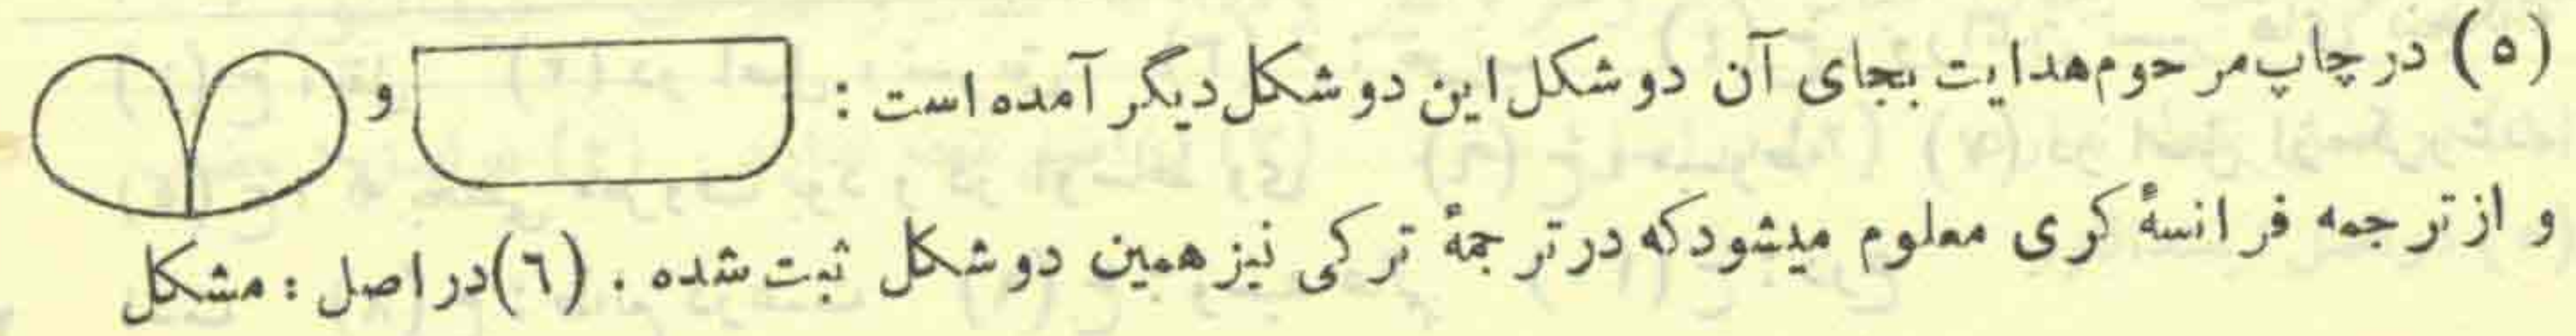 (٥) در چاپ مرحوم هدایت بجای آن دو شکل این دو شکل دیگر آمده است : و
و از ترجمه فرانسهٔ کری معلوم میشود که در ترجمهٔ ترکی نیز همین دو شکل ثبت شده . (٦) در اصل : مشکل